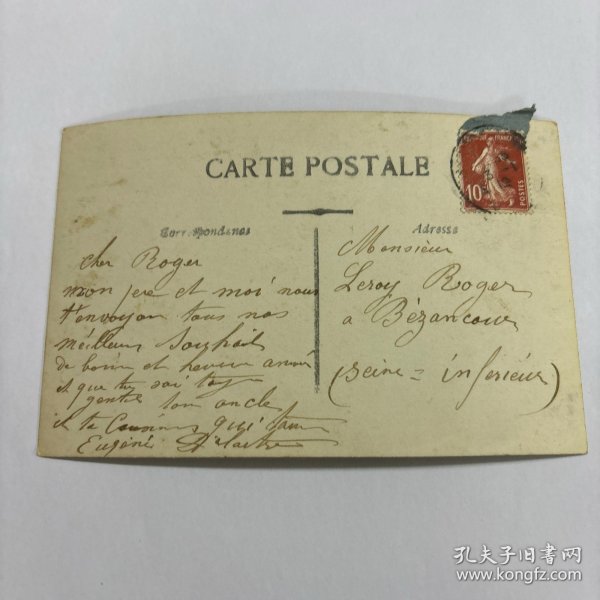 CARTE POSTALE
Correspondance
Adresse
cher Roger
mon pere et moi nous
t'envoyon tous nos
meilleur souhait
de bonne et heureu année
et que tu soi
gentil ton oncle
et ta qui t'aime
Eugénie
Monsieur
Leroy Roger
a Bézancour
(Seine = inferieur)
10
POSTES
孔夫子旧书网
www.kongfz.com